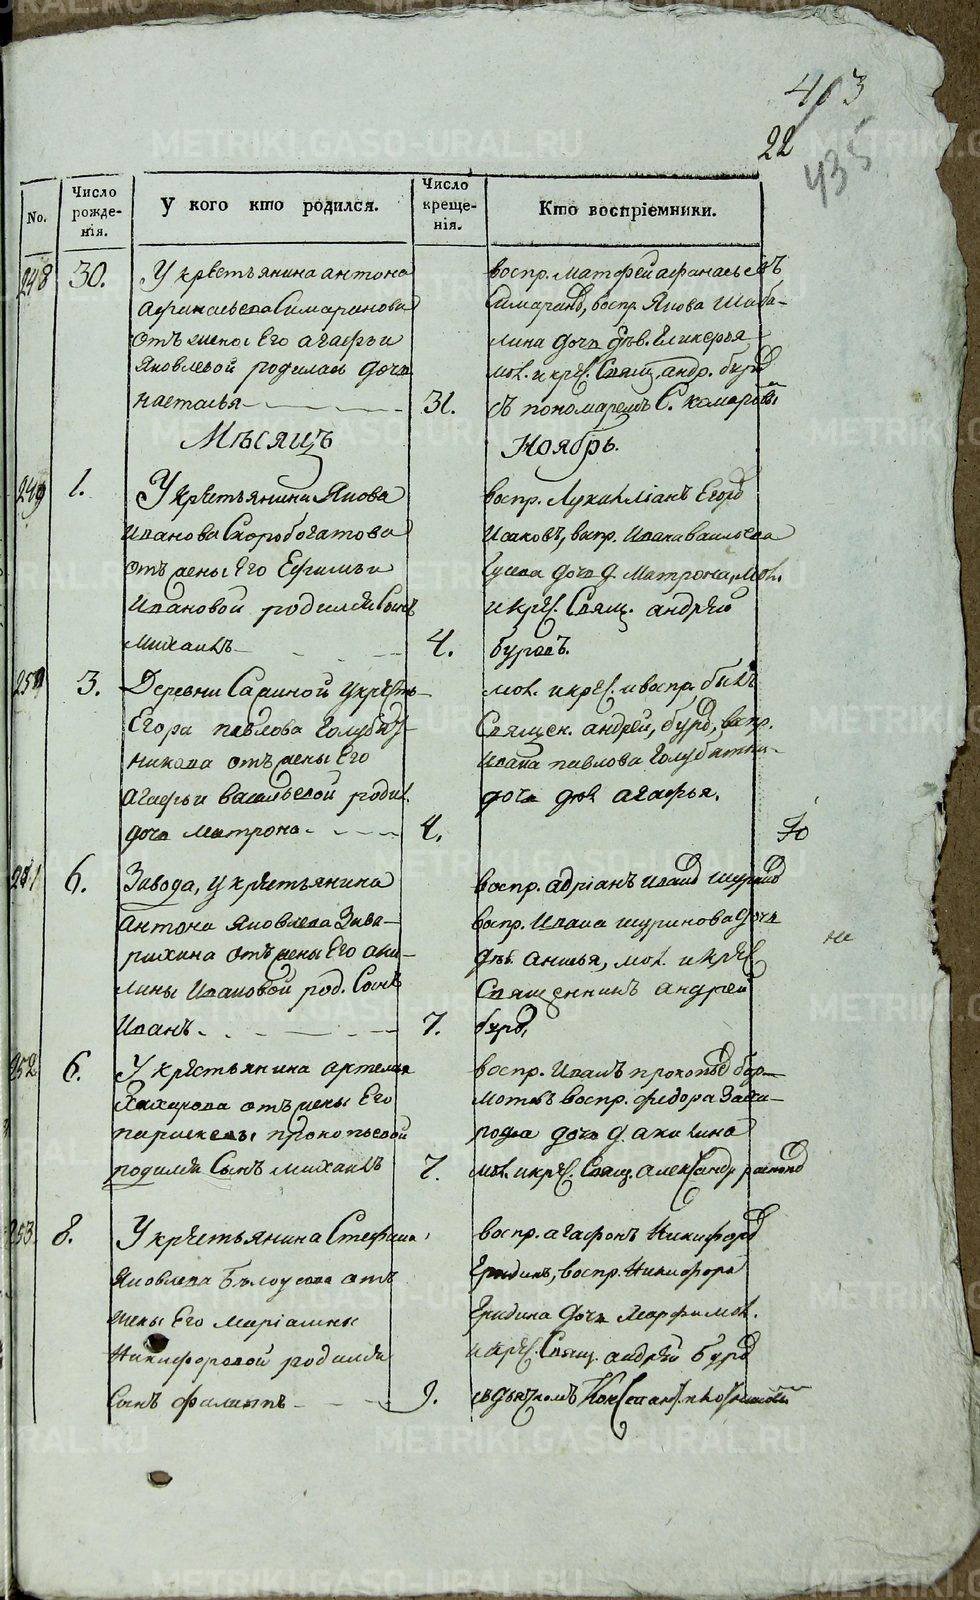 403
22
435
No.
Число рожденія.
У кого кто родился.
Число крещенія.
Кто воспріемники.
248
30.
У крестьянина антона
афанасьева Симаранова
отъ жены Его агафьи
Яковлевой родилась дочь
настасья
31.
воспр. Матфей афанасьевъ
Симарановъ, воспр. Якова Шаба-
лина дочь дѣв. Гликерья
мол. и крес. Свящ. андр. бурд
съ пономаремъ С. комаровы
Мѣсяцъ
Ноябрь.
249
1.
У крестьянина Якова
Иванова Скоробогатова
отъ жены Его Ефимьи
Ивановой родился Сынъ
михаилъ
4.
воспр. Лукилліанъ Егор
Исаковъ, воспр. Ивана васильева
Гусева дочь д. Матрона, мол.
и крес. Свящ. андрей
бурдъ.
250
3.
Деревни Сариной у крестья
Егора павлова голубят-
никова отъ жены Его
агафьи васильевой родил.
дочь матрона
4.
мол. и крес. и воспр. былъ
Священ. андрей, бурд, воспр.
Ивана павлова голубятни-
дочь дѣв агафья.
251
6.
Завода, у крестьянина
антона яковлева Зива-
рихина отъ жены Его аки-
лины Ивановой род. Сынъ
Иванъ
7.
воспр. адріанъ Иванов шуринов
воспр. Ивана шуринова дочь
дѣв. анисья, мол. и крес
Священникъ андрей
бурд,
не
252
6.
У крестьянина артемья
Захарова отъ жены Его
парасковьи прокопьевой
родился Сынъ михаилъ
7.
воспр. Иванъ прокопьев бур-
мотовъ воспр. федора Заха-
рова дочь д. акилина
мол. и крес. Свящ. александр
253
8.
У крестьянина Стефана
Яковлева Бѣлоусова отъ
жены Его маріамны
Никифоровой родился
Сынъ филиппъ
9.
воспр. агафонъ Никифоров
Гридинъ, воспр. Никифора
Гридина дочь Марфа мол.
и крес. Свящ. андрей бурд
съ дьячкомъ
METRIKI.GASO-URAL.RU